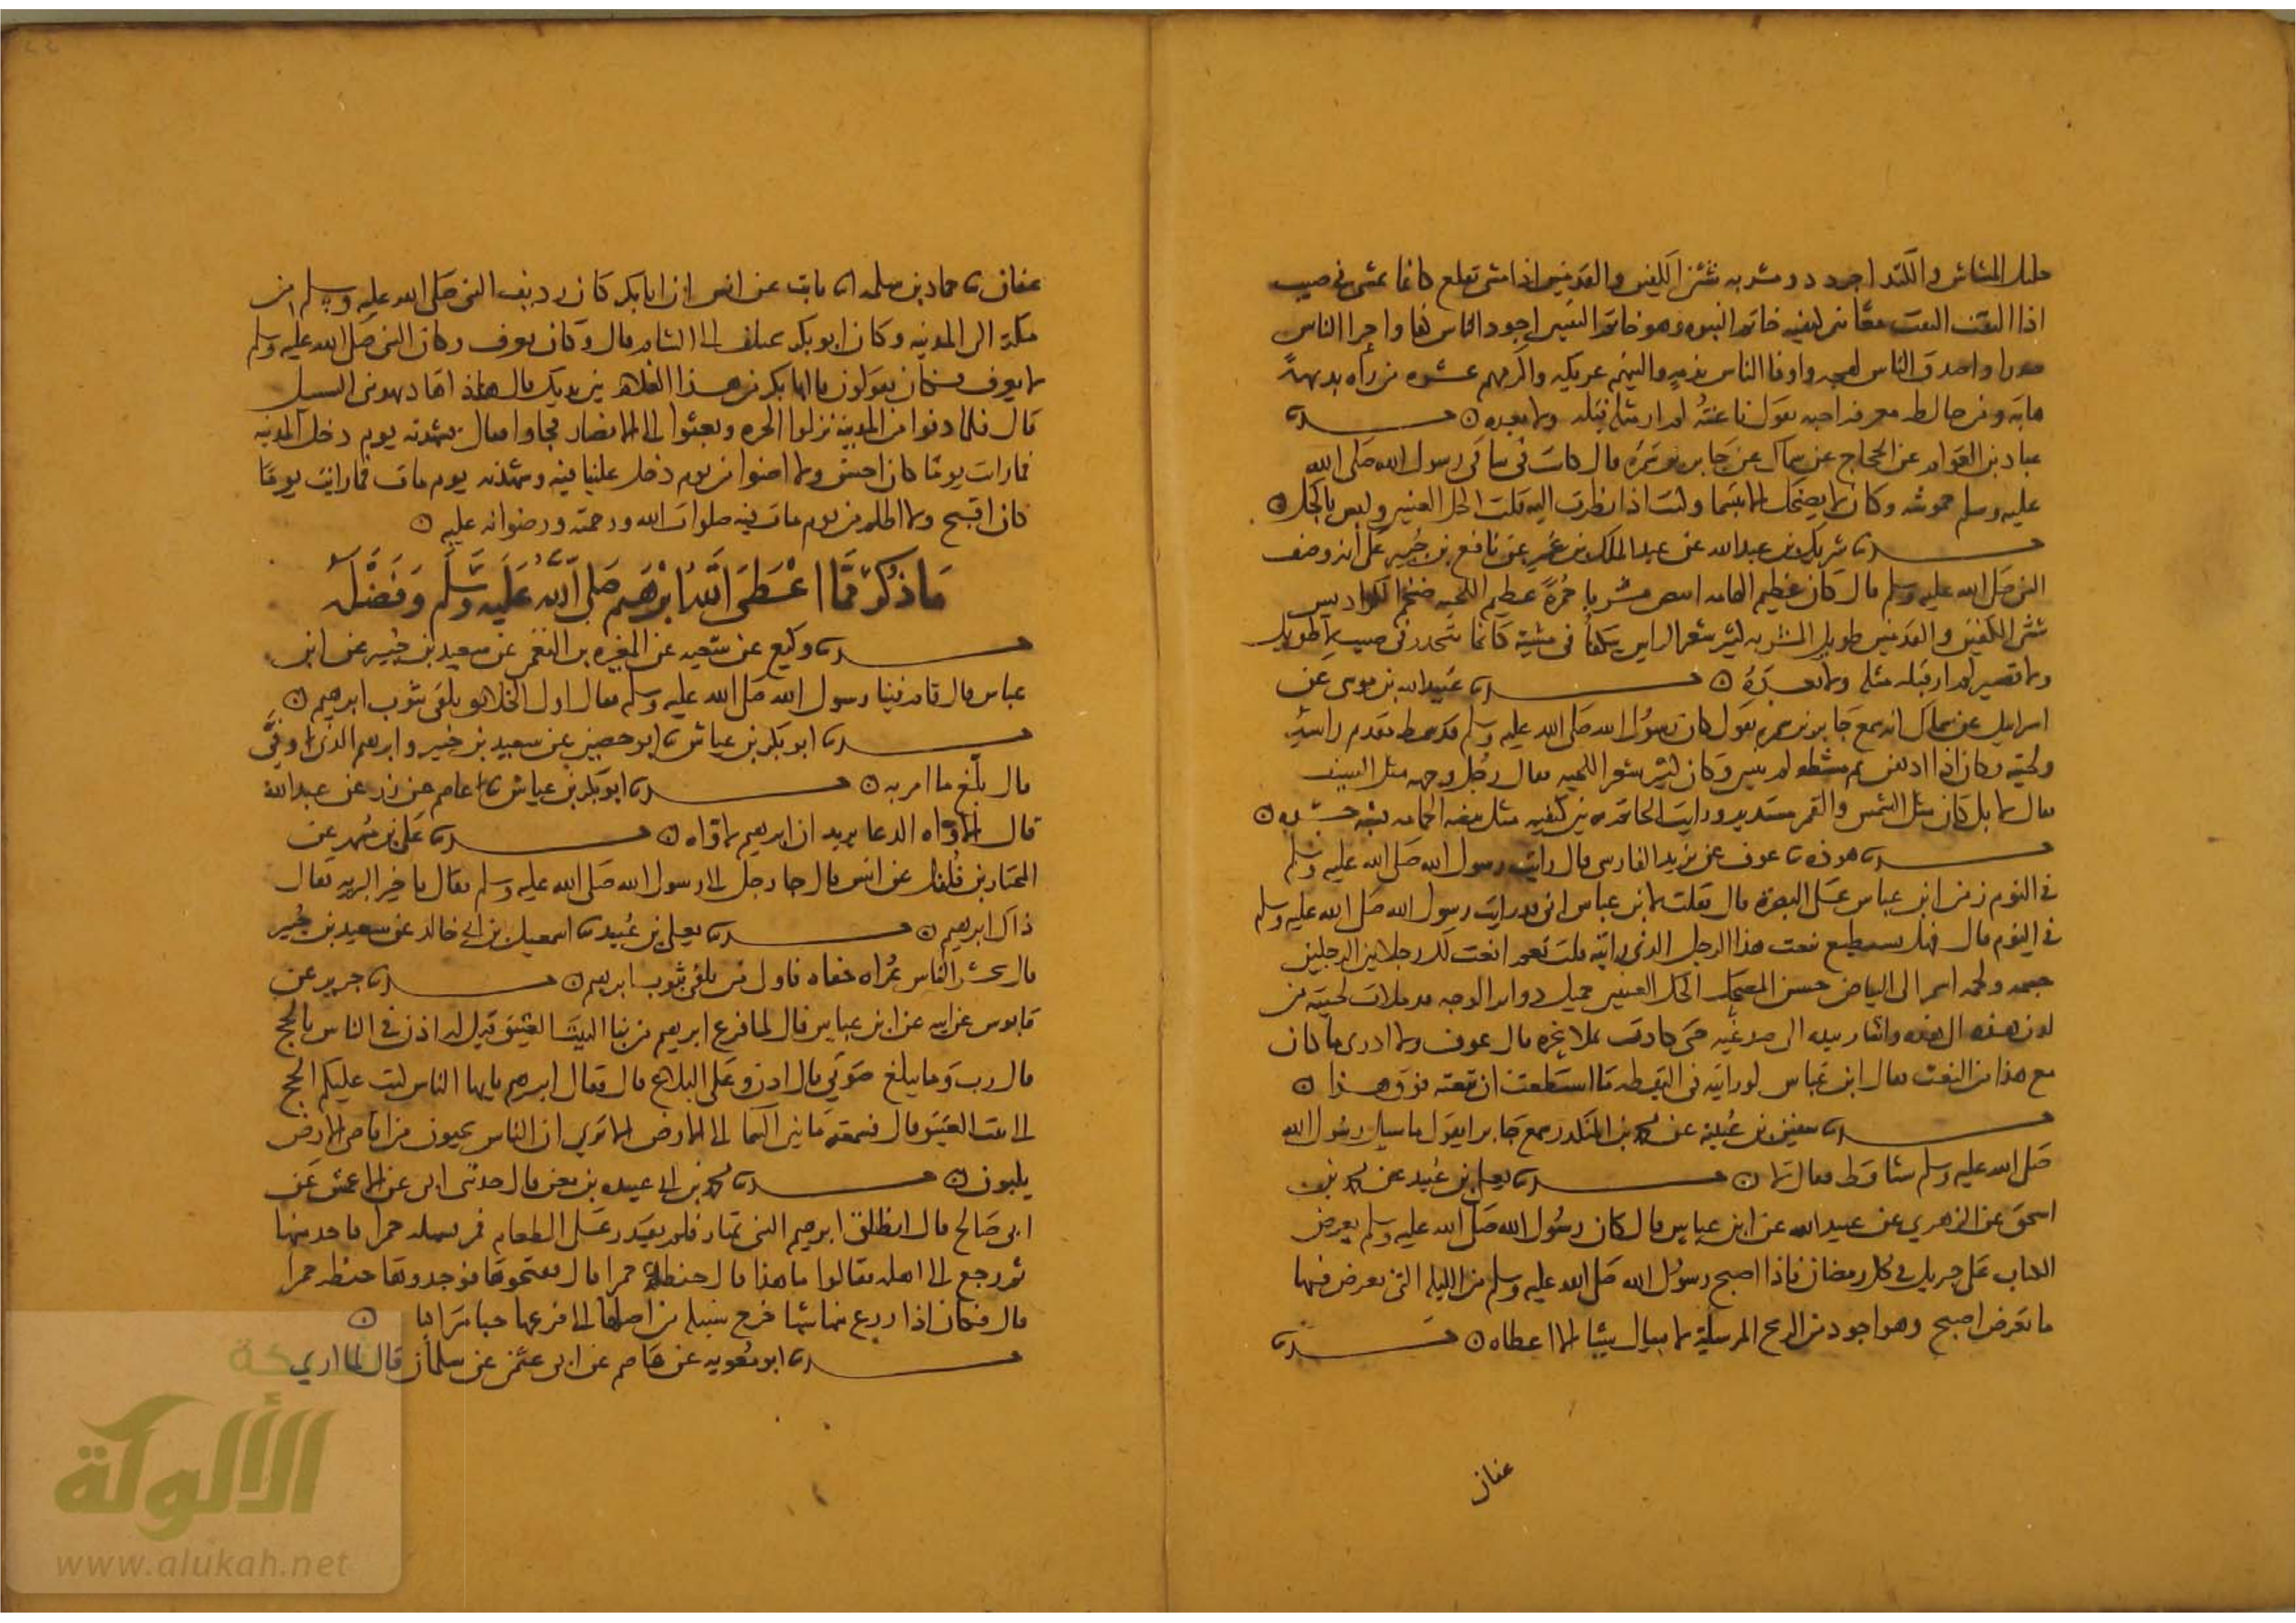 جليل المشاش والكتد اجرد ذو مسربه شثن الكفين والقدمين اذا مشى تقلع كانما يمشي في صبب
اذا التفت التفت معًا بين كتفيه خاتم النبوه وهو خاتم النبيين اجود الناس كفا واجرا الناس
صدرا واصدق الناس لهجه واوفا الناس بذمه والينهم عريكه واكرمهم عشره من رآه بديهةً
هابه ومن خالطه معرفه احبه يقول ناعتُه لم ار مثله قبله ولا بعده ن حدثنا
عباد بن العوام عن الحجاج عن سماك عن جابر بن سمره قال كانت في ساقي رسول الله صلى الله
عليه وسلم حموشه وكان لا يضحك الا تبسما وكنت اذا نظرت اليه قلت اكحل العينين وليس باكحل ن
حدثنا شريك بن عبدالله عن عبد الملك بن عمير عن نافع بن جبير عن علي انه وصف
النبي صلى الله عليه وسلم قال كان عظيم الهامه ابيض مشربا حُمرةً عظيم اللحيه ضخم الكراديس
شثن الكفين والقدمين طويل المسربه كثير شعر الراس يتكفأ في مشيته كانما يتحدر في صبب لا طويل
ولا قصير لم ار قبله مثله ولا بعدَهُ ن حدثنا عُبيدالله بن موسى عن
اسرايل عن سماك انه سمع جابر بن سمره يقول كان رسول الله صلى الله عليه وسلم قد شمط مقدم راسه
ولحيته وكان اذا ادهن ثم مشطه لم يتبين وكان كثير شعر اللحيه فقال رجُل وجهه مثل السيف
قال لا بل كان مثل الشمس والقمر مستدير ورايت الخاتم بين كتفيه مثل بيضه الحمامه تشبه جسده ن
حدثنا هوذه نا عوف عن يزيد الفارسي قال رايت رسول الله صلى الله عليه وسلم
في النوم زمن ابن عباس على البصرة قال فقلت لابن عباس اني قد رايت رسول الله صلى الله عليه وسلم
في النوم قال فهل تستطيع تنعت هذا الرجل الذي رايته قلت نعم انعت لك رجلا بين الرجلين
جسمه ولحمه اسمر الى البياض حسن المضحك اكحل العينين جميل دواير الوجه قد ملات لحيته من
لدن هذه الى هذه واشار بيده الى صدغيه حتى كادت تملا نحره قال عوف ولا ادري ما كان
مع هذا من النعت فقال ابن عباس لو رايته في اليقظه ما استطعت ان تنعته فوق هذا ن
حدثنا سفين بن عُيينه عن محمد بن المنكدر سمع جابرا يقول ما سيل رسول الله
صلى الله عليه وسلم شيا قط فقال لا ن حدثنا يعلى بن عُبيد عن محمد بن
اسحق عن الزهري عن عبيدالله عن ابن عباس قال كان رسول الله صلى الله عليه وسلم يعرض
الكتاب على جبريل في كل رمضان فاذا اصبح رسول الله صلى الله عليه وسلم من الليله التي يعرض فيها
ما يعرض اصبح وهو اجود من الريح المرسلة لا يسال شيا الا اعطاه ن حدثنا
عفان
عفان نا حماد بن سلمه انا ثابت عن انس ان ابا بكر كان رديف النبي صلى الله عليه وسلم من
مكة الى المدينه وكان ابو بكر يختلف الى الشام قال وكان يعرف وكان النبي صلى الله عليه وسلم
لا يعرف فكانو يقولون يا ابا بكر من هذا الغلام بين يديك قال هاذ ا هاد يهديني السبيل
قال فلما دنوا من المدينة نزلوا الحره وبعثوا الى الانصار فجاوا فقال فشهدته يوم دخل المدينه
فما رايت يومًا كان احسن ولا اضوا من يوم دخل علينا فيه وشهدته يوم مات فما رايت يومًا
كان اقبح ولا اظلم من يوم مات فيه صلوات الله ورحمته ورضوانه عليه ن
مَا ذُكِرَ مِمَّا اعْطَى الله ابرٰهيم صَلى الله عَليه وَسَلم وَفَضَّلَه
حدثنا وكيع عن سعيد عن المغيره بن النعمن عن سعيد بن جُبير عن ابن
عباس قال قام فينا رسول الله صلى الله عليه وسلم فقال اول الخلايق يلقى بثوب ابرهيم ن
حدثنا ابو بكر بن عياش نا ابو حصين عن سعيد بن جبير وابرهيم الذي وفّى
قال بلّغ ما امر به ن حدثنا ابو بكر بن عياش نا عاصم عن زر عن عبدالله
قال الاواه الدعا يريد ان ابرهيم لاواه ن حدثنا علي بن مُسهر عن
المختار بن فُلفل عن انس قال جا رجل الى رسول الله صلى الله عليه وسلم فقال يا خير البريه فقال
ذاك ابرهيم ن حدثنا يعلى بن عُبيد نا اسمعيل بن ابي خالد عن سعيد بن جُبير
قال يحشر الناس عُراه حفاه فاول من يلقى بثوب ابرهيم ن حدثنا جرير عن
قابوس عن ابيه عن ابن عباس قال لما فرغ ابرهيم من بنا البيت العتيق قيل له اذن في الناس بالحج
قال رب وما يبلغ صَوتي قال اذن وعلي البلاغ قال فقال ابرهيم يايها الناس كتب عليكم الحج
الى البيت العتيق قال فسمعه ما بين السما الى الارض الا ترى ان الناس يجيون من اقاصي الارض
يلبون ن حدثنا محمد بن ابي عبيده بن معن قال حدثني ابي عن الاعمش عن
ابي صالح قال انطلق ابرهيم النبي يمتار فلم يقدر على الطعام فمر بسهله حمرا فاخذ منها
ثم رجع الى اهله فقالوا ما هذا قال حنطة حمرا قال ففتحوها فوجدوها حنطه حمرا
قال فكان اذا زرع منها شيا خرج سنبله من اصلها الى فرعها حبا متراكبا ن
حدثنا ابو معويه عن عاصم عن ابي عثمن عن سلمان قال لما اري
شبكة
الألوكة
www.alukah.net